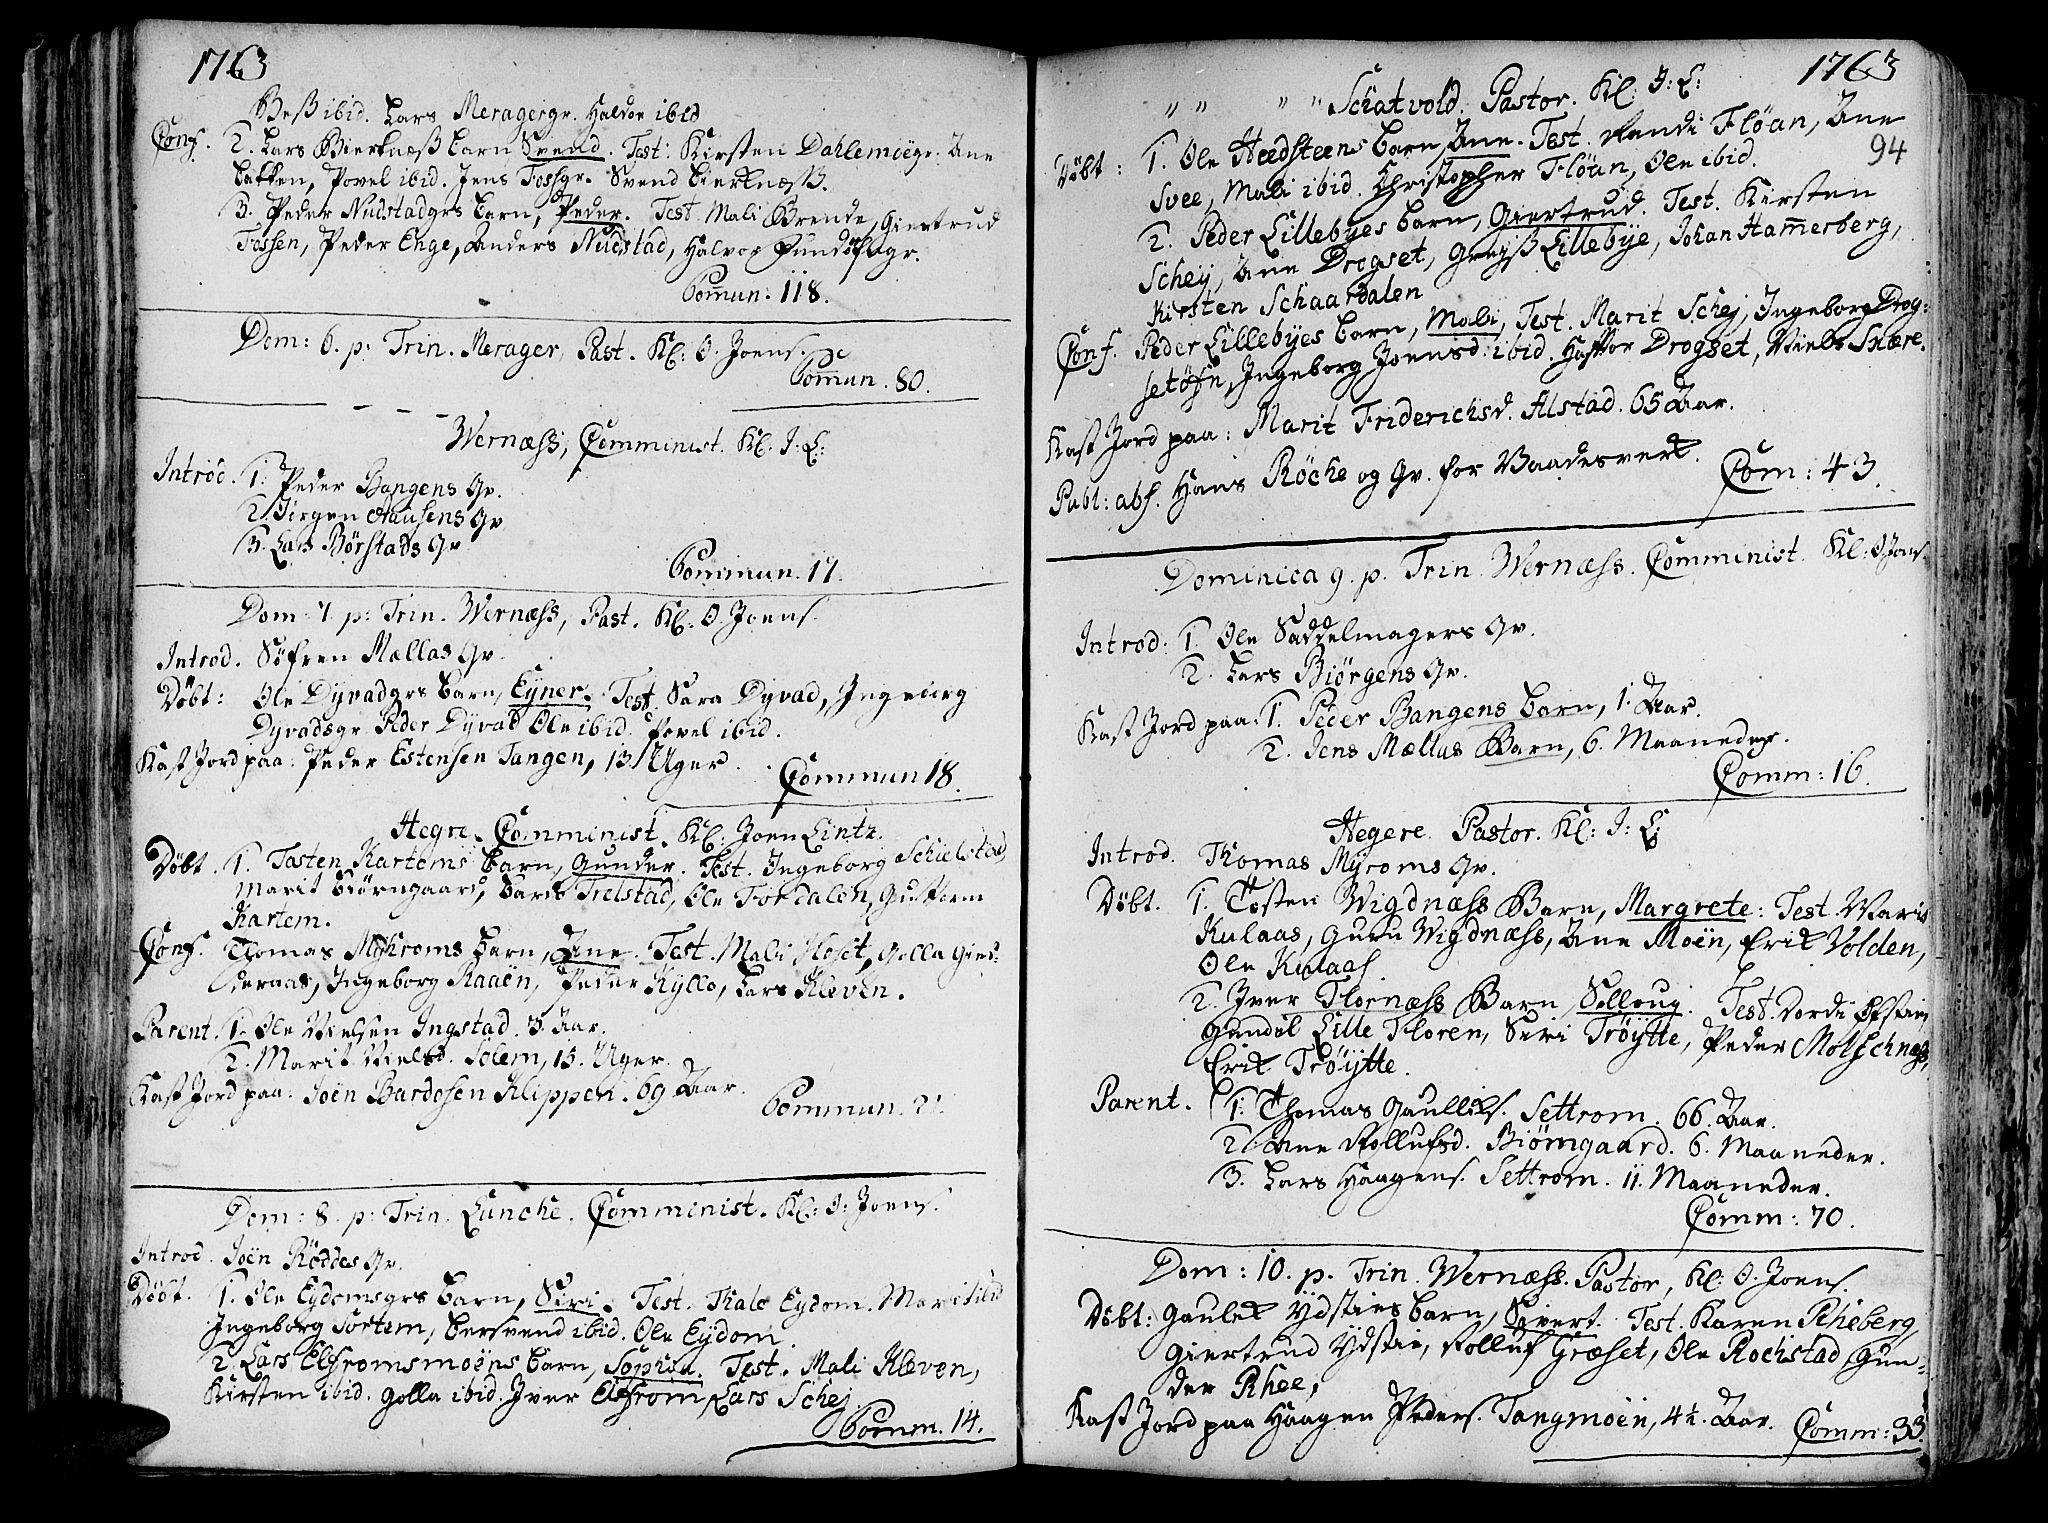 1763
ibid. Lars Meragergr. Halvor ibid
Conf. 2. Lars Biertnæss barn Svend. Test: Kirsten Dahlemoëgr. Ane
Bakken, Povel ibid. Jens Fossgr. Svend Biertnæss.
3. Peder Nudstadgrs barn, Peder. Test Mali Brende, Giertrud
Fossen, Peder Enge, Anders Nudstad, Halvor
Commun: 118.
Dom: 6. p: Trin. Merager, Past. Kl: O. Joens.
Commun. 80.
Wernæss, Comminist. Kl: J: L:
Introd. 1. Peder Bangens Qv.
2. Jörgen Hausens Qv
3. Lars Börstads Qv
Commun. 17.
Dom: 7. p: Trin. Wernæss, Past. Kl. O. Joens.
Introd. Söfren Mællas Qv.
Döbt: Ole Dyvadgrs barn, Eyner. Test. Sara Dyvad, Ingeborg
Dyvadsgr. Peder Dyvad Ole ibid. Povel ibid.
Kast Jord paa: Peder Estensen Tangen, 13 Uger. Commun 18.
Hegre. Comminist. Kl: Joen Lintz.
Döbt. 1. Tosten Kartems barn, Gunder. Test. Ingeborg Schielstad,
Marit Biörngaard, Lars Trelstad, Ole Fordalen, Guttorm
Kartem.
Conf. Thomas barn, Ane. Test. Mali Hoset, Golla Gies-
deraas, Ingeborg Raaën, Peder Kyllo, Lars Kleven.
Parent. 1. Ole Nielsen Ingstad. 3. Aar.
2. Marit Nielsd. Solem, 15. Uger.
Kast Jord paa: Joën Bardosen Klippen. 69 Aar. Commun. 21.
Dom: 8. p: Trin. Lunche. Comminist. Kl: O: Joens.
Introd. Joën Röddes Qv.
Döbt. 1. Ole Eydomsgrs barn, Siri. Test. Eydom. Marit ibid
Ingeborg Sörtem, Bersvend ibid. Ole Eydom
2. Lars Elfromsmoëns barn, Sophia. Test. Mali Kleven,
Kirsten ibid. Golla ibid. Jver Elfrom, Lars Schej
Comm. 14.
1763
94
" " " " Schatvold. Pastor. Kl: J: L:
Döbt: 1. Ole Hædsteens barn, Ane. Test. Randi Flöan, Ane
Svee, Mali ibid. Christopher Flöan, Ole ibid.
2. Peder Lillebyes barn, Giertrud. Test. Kirsten
Schey, Ane Drogset, Lillebye, Johan Hammerberg,
Kirsten Schaardalen
Conf. Peder Lillebyes barn, Mali, Test. Marit Schej, Ingeborg Drog-
Ingeborg Joensd. ibid. Drogset, Niels
Kast Jord paa: Marit Friderichsd. Alstad. 65 Aar.
Publ: abs. Hans Röche og Qv. for Vaadesverk. Com: 43.
Dominica 9. p. Trin. Wernæss. Comminist. Kl: O Joens.
Introd: 1. Ole Saddelmagers Qv.
2. Lars Biörgens Qv.
Kast Jord paa: 1. Peder Bangens barn, 1. Aar.
2. Jens Mællas Barn, 6. Maaneder.
Comm: 16.
Hegere. Pastor. Kl: J: L:
Introd. Thomas Myroms Qv.
Döbt. 1. Tosten Wigdnæss Barn, Margrete: Test. Marit
Kulaas, Guru Wigdnæss, Ane Moën, Erik Volden,
Ole Kulaas.
2. Jver Flornæss Barn, Sellou. Test. Dordi
Lille Floren, Siri Tröytte, Peder
Erik Tröytte.
Parent. 1. Thomas Settrom. 66. Aar.
2. Ane Rollufsd. Biörngaard. 6. Maaneder.
3. Lars Haagens. Settrom. 11. Maaneder.
Comm: 70.
Dom: 10. p. Trin. Wernæss. Pastor, Kl. O. Joens.
Döbt: Gaulek Ydsties barn, Sivert. Test. Karen Scheberg,
Giertrud Ydstie, Rolluf Græset, Ole Rochstad, Gun-
der Rhee,
Kast Jord paa Haagen Peders. Tangmoën, 4½. Aar. Comm: 33.